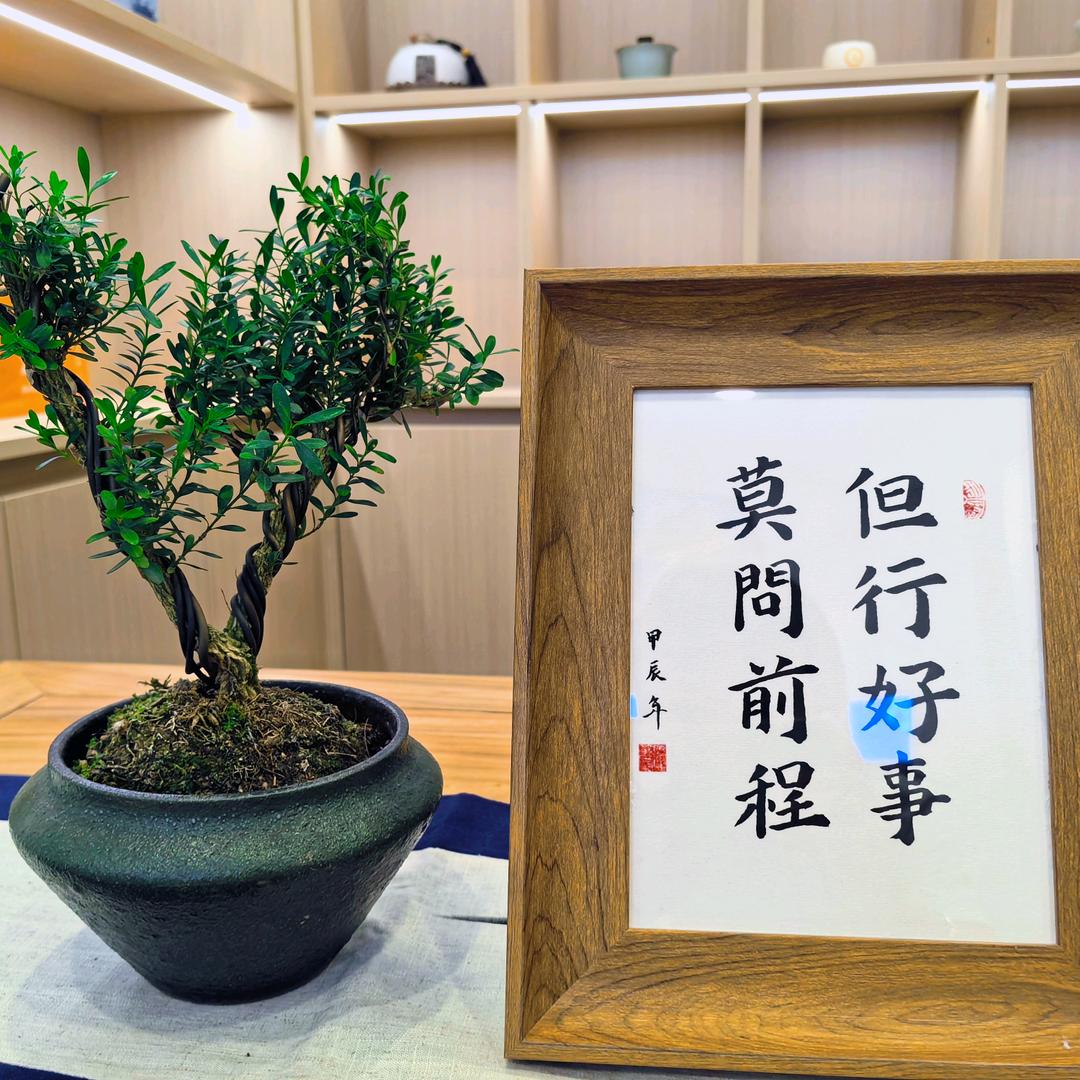 但行好事
莫問前程
甲辰年